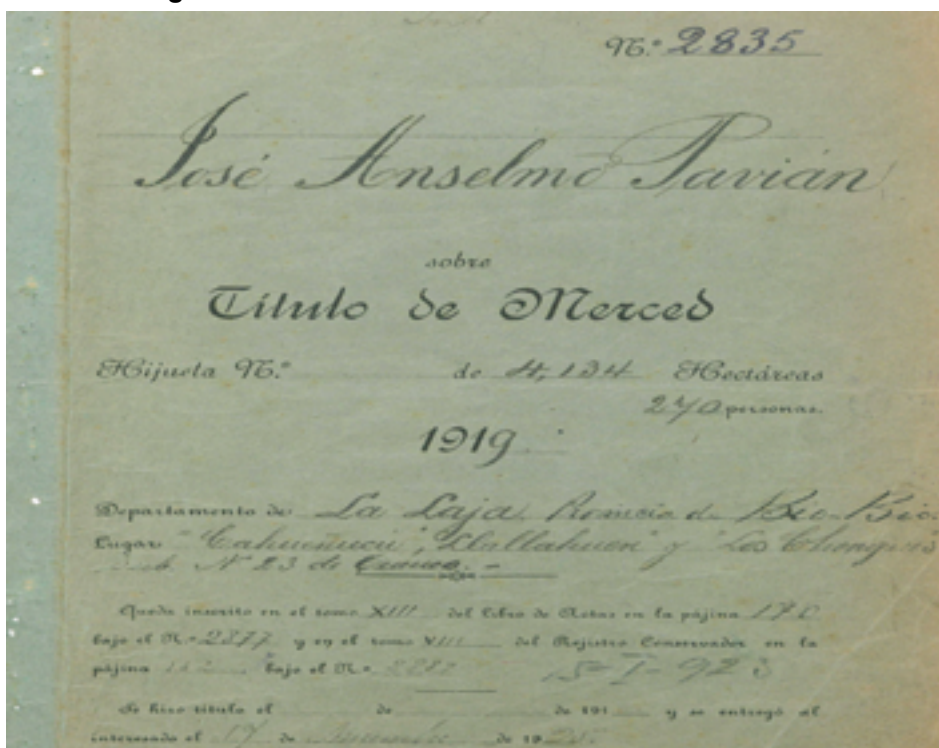 N.º 2835
José Anselmo Pavián
sobre
Título de Merced
Hijuela N.º de 4,134 Hectáreas
270 personas.
1919
Departamento de La Laja. Provincia de Bio-Bio.
Lugar "Cahuenucu", "Llallahuen" y "Los Chenques"
N° 23 de
Queda inscrito en el tomo XIII del Libro de Actas en la pájina 170
bajo el N.º 2877 y en el tomo VIII del Rejistro Conservador en la
pájina bajo el N.º 2282 I-923
Se hizo título el de de 191 y se entregó al
interesado el 17 de de 19